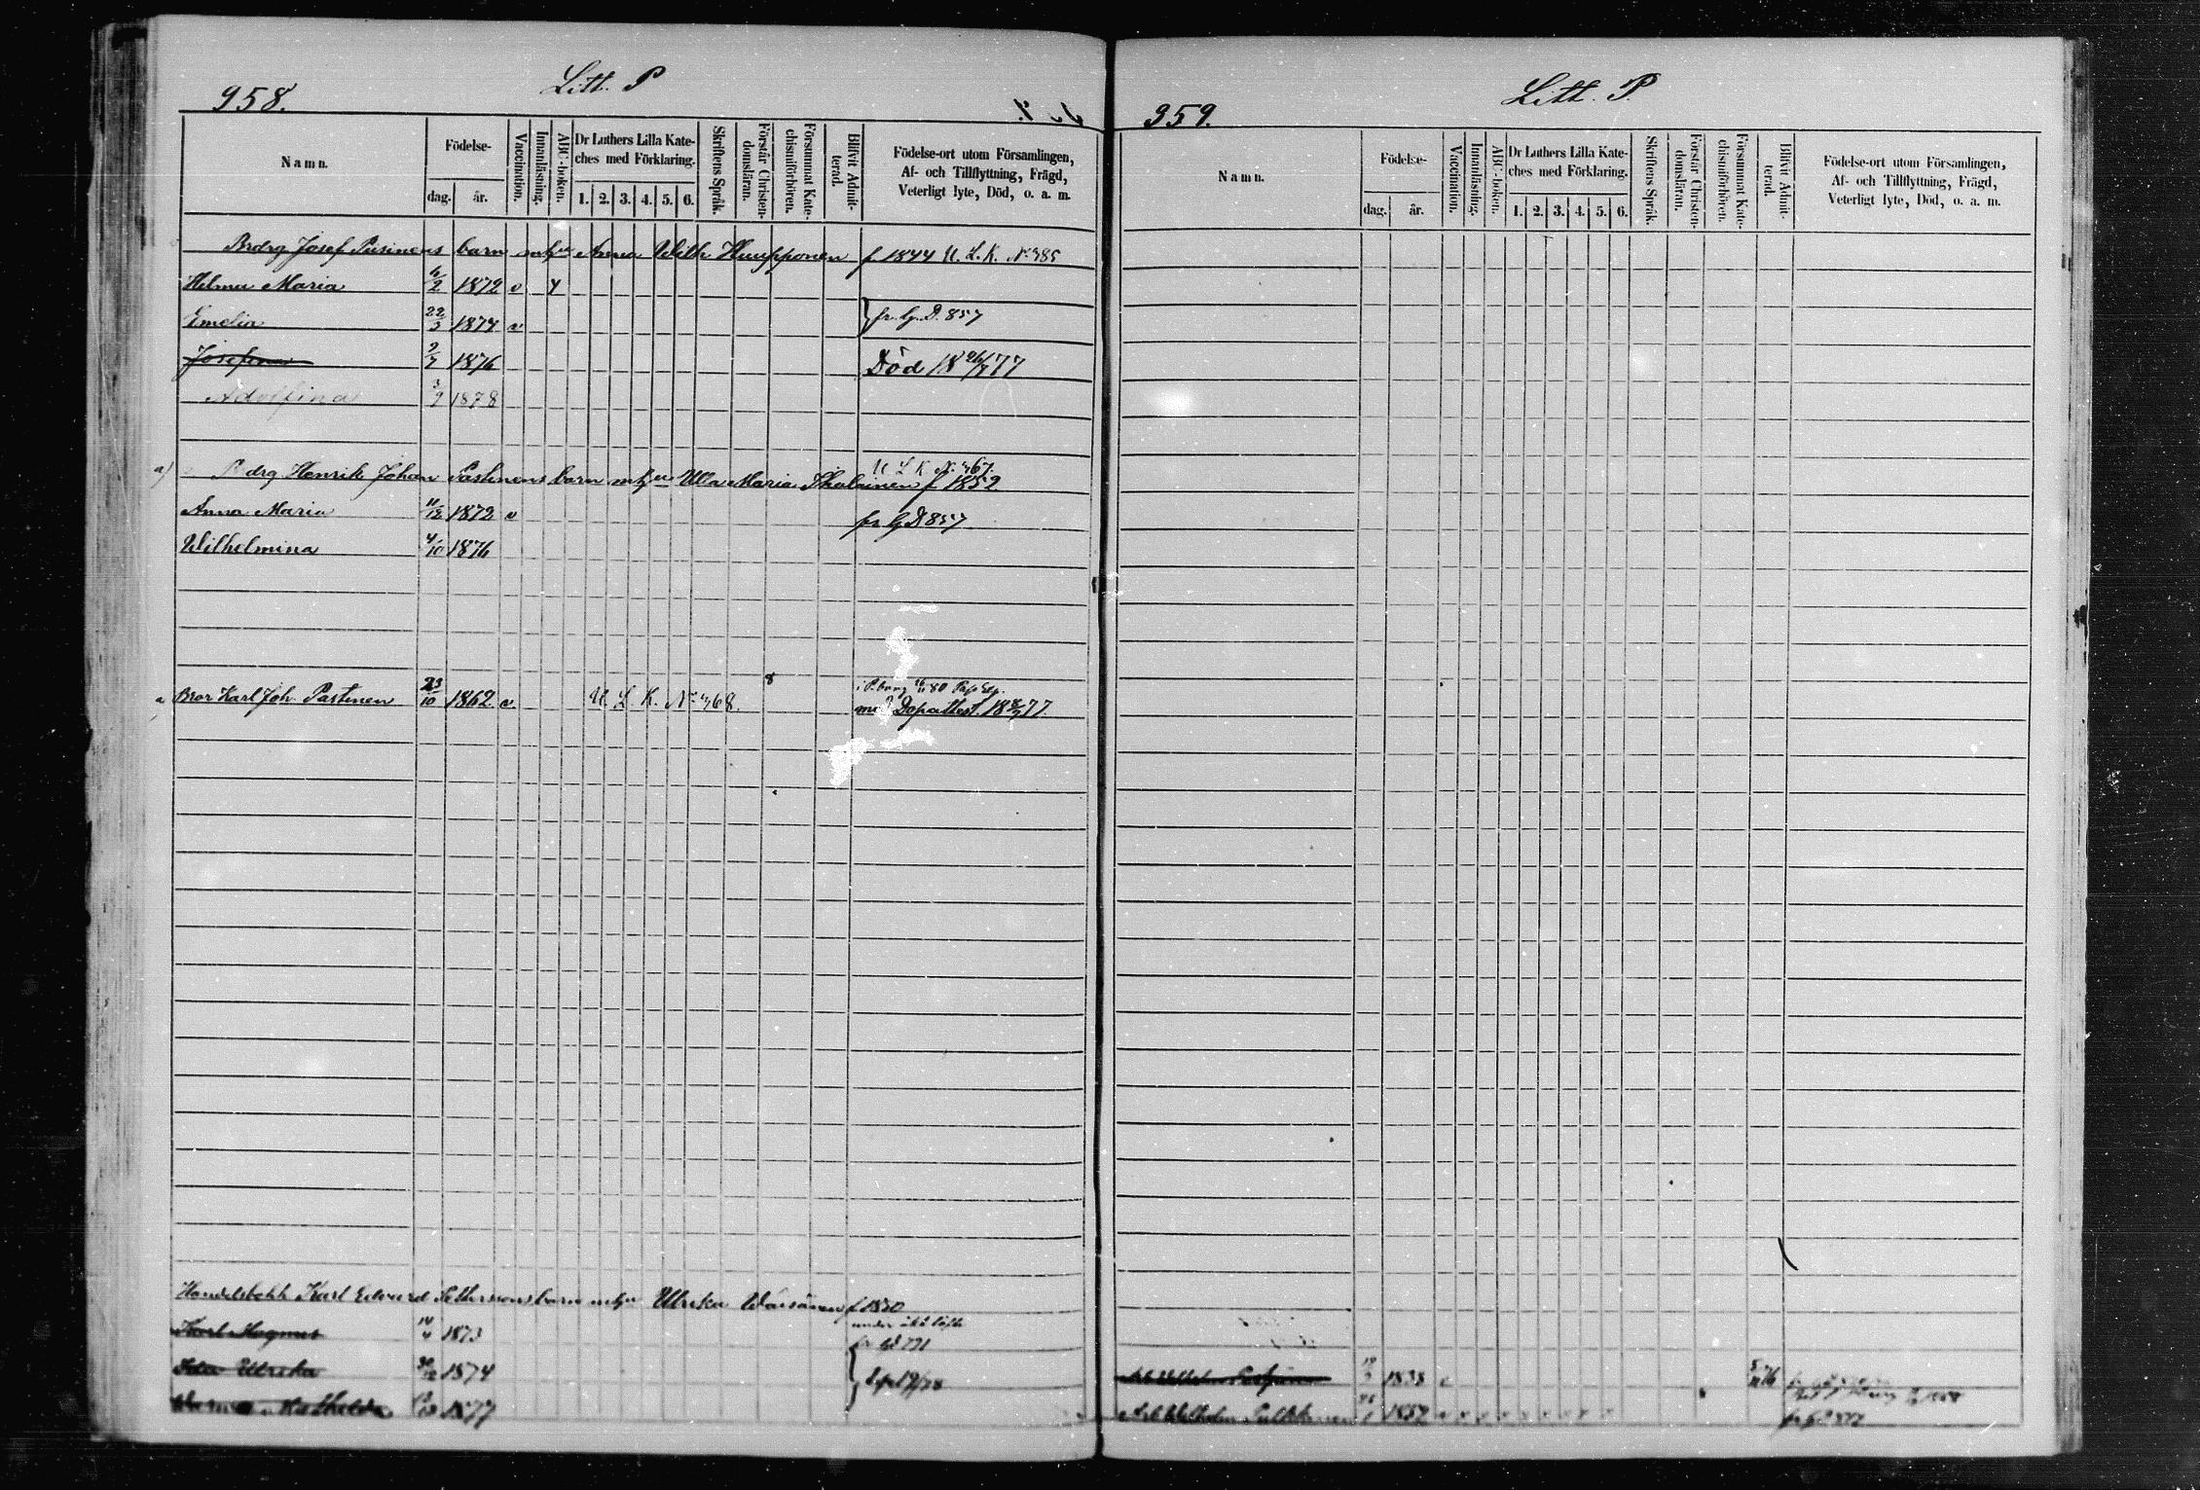 958.
Litt. P
Namn.
Födelse-
dag.
år.
Vaccination.
Innanläsning.
ABC-boken.
Dr Luthers Lilla Kate-
ches med Förklaring.
1. 2. 3. 4. 5. 6.
Skriftens Språk.
Förstår Christen-
domsläran.
Försummat Kate-
chismiförhören.
Blifvit Admit-
terad.
Födelse-ort utom Församlingen,
Af- och Tillflyttning, Frägd,
Veterligt lyte, Död, o. a. m.
Brdrg Josef Pusinens barn m hu Anna Wilh Huupponen f 1844 U. L. K. No 385
Helma Maria 6/2 1872 v 4
Emelia 22/3 1874 v fr. G. D. 857
Josefina 2/7 1876 Död 18 26/7 77
Adolfina 3/9 1878
U L K No 467.
a) Bdrg Henrik Johan Pastinens barn m hu Ulla Maria f 1852
Anna Maria 11/12 1872 v fr G D 857
Wilhelmina 4/10 1876
80
a Bror Karl Joh Pastinen 23/10 1862 v U. L. K. No 468. med Dopattest. 77
Handelsbokh Karl Edvard barn m hu Ulrika Wäisänen f 1850
Karl Magnus 14/4 1873
Ida Ulrika 30/12 1874
Mathilda 1877
959.
Litt. P.
Namn.
Födelse-
dag.
år.
Vaccination.
Innanläsning.
ABC-boken.
Dr Luthers Lilla Kate-
ches med Förklaring.
1. 2. 3. 4. 5. 6.
Skriftens Språk.
Förstår Christen-
domsläran.
Försummat Kate-
chismiförhören.
Blifvit Admit-
terad.
Födelse-ort utom Församlingen,
Af- och Tillflyttning, Frägd,
Veterligt lyte, Död, o. a. m.
1838
1857